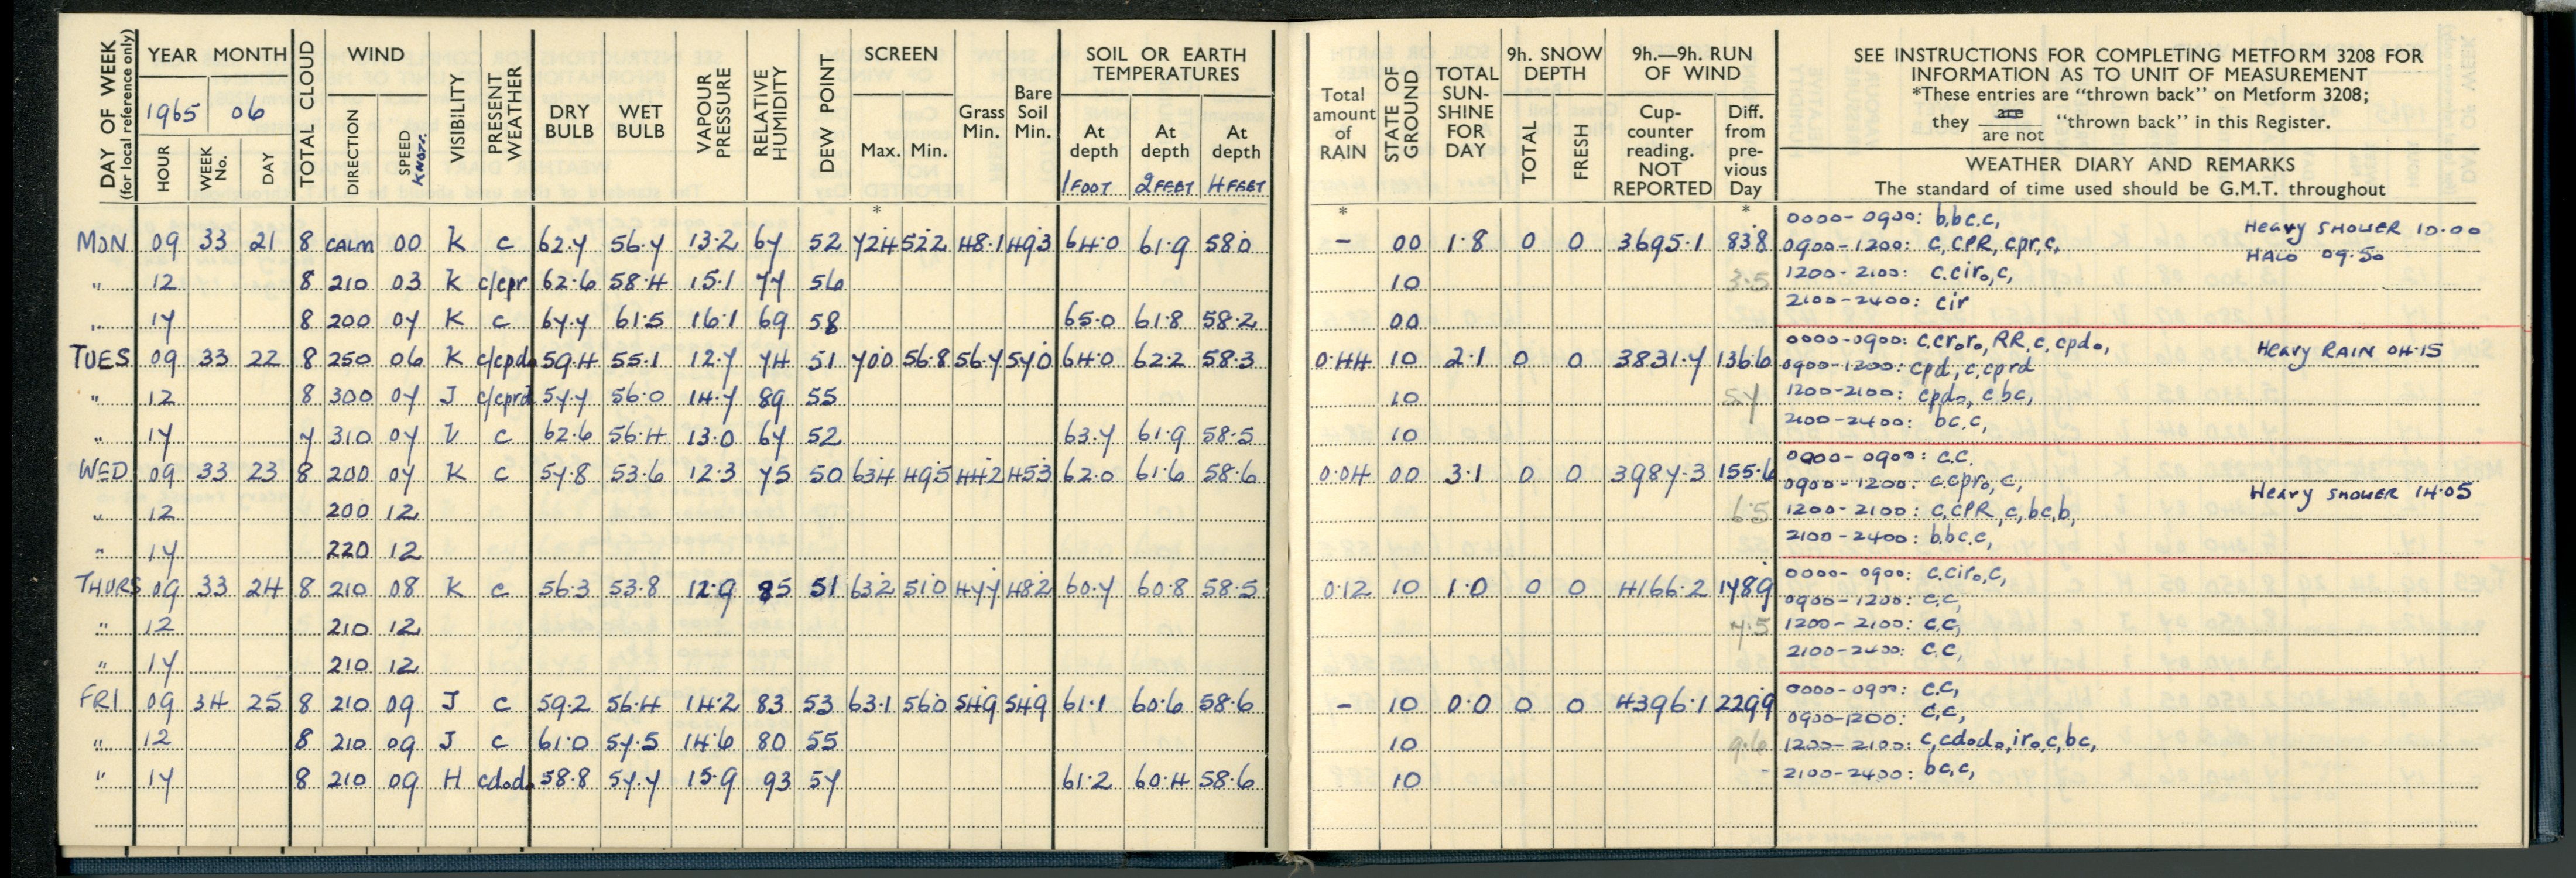 DAY OF WEEK (for local reference only)
YEAR MONTH
1965 06
HOUR WEEK No. DAY
TOTAL CLOUD
WIND
DIRECTION SPEED KNOTS.
VISIBILITY
PRESENT WEATHER
DRY BULB
WET BULB
VAPOUR PRESSURE
RELATIVE HUMIDITY
DEW POINT
SCREEN
Max. Min.
Grass Min.
Bare Soil Min.
SOIL OR EARTH TEMPERATURES
At depth 1 FOOT
At depth 2 FEET
At depth 4 FEET
Total amount of RAIN
STATE OF GROUND
TOTAL SUN-SHINE FOR DAY
9h. SNOW DEPTH
TOTAL FRESH
9h.—9h. RUN OF WIND
Cup-counter reading. NOT REPORTED
Diff. from pre-vious Day
SEE INSTRUCTIONS FOR COMPLETING METFORM 3208 FOR
INFORMATION AS TO UNIT OF MEASUREMENT
*These entries are "thrown back" on Metform 3208;
they are / are not "thrown back" in this Register.
WEATHER DIARY AND REMARKS
The standard of time used should be G.M.T. throughout
* * *
MON 09 33 21 8 CALM 00 K c 62.7 56.7 13.2 67 52 72.4 52.2 48.1 49.3 64.0 61.9 58.0 - 00 1.8 0 0 3695.1 83.8
" 12 8 210 03 K c/cpr 62.6 58.4 15.1 77 56 10 3.5
" 17 8 200 07 K c 67.7 61.5 16.1 69 58 65.0 61.8 58.2 00
0000-0900: b,bc.c,
0900-1200: c,CPR, cpr,c,
1200-2100: c.ciro,c,
2100-2400: cir
Heavy SHOWER 10.00
HALO 09.50
TUES 09 33 22 8 250 06 K c/cpdo 59.4 55.1 12.7 74 51 70.0 56.8 56.7 57.0 64.0 62.2 58.3 0.44 10 2.1 0 0 3831.7 136.6
" 12 8 300 07 J c/cprd 57.7 56.0 14.7 89 55 10 5.7
" 17 7 310 07 c 62.6 56.4 13.0 67 52 63.7 61.9 58.5 10
0000-0900: c,croro, RR, c, cpdo,
0900-1200: cpd, c,cprd
1200-2100: cpdo, c bc,
2100-2400: bc.c,
Heavy RAIN 04.15
WED 09 33 23 8 200 07 K c 57.8 53.6 12.3 75 50 63.4 49.5 44.2 45.3 62.0 61.6 58.6 0.04 00 3.1 0 0 3987.3 155.6
" 12 200 12 6.5
" 17 220 12
0000-0900: c.c.
0900-1200: c.cpro, c,
1200-2100: c,CPR, c, bc,b,
2100-2400: b,bc.c,
Heavy SHOWER 14.05
THURS 09 33 24 8 210 08 K c 56.3 53.8 12.9 85 51 63.2 51.0 47.7 48.2 60.7 60.8 58.5 0.12 10 1.0 0 0 4166.2 178.9
" 12 210 12 7.5
" 17 210 12
0000-0900: c.ciro,c,
0900-1200: c.c,
1200-2100: c.c,
2100-2400: c.c,
FRI 09 34 25 8 210 09 J c 59.2 56.4 14.2 83 53 63.1 56.0 54.9 54.9 61.1 60.6 58.6 - 10 0.0 0 0 4396.1 229.9
" 12 8 210 09 J c 61.0 57.5 14.6 80 55 10 9.6
" 17 8 210 09 H cdodo 58.8 57.7 15.9 93 57 61.2 60.4 58.6 10 -
0000-0900: c.c,
0900-1200: c,c,
1200-2100: c,cdodo, iro,c,bc,
2100-2400: bc,c,